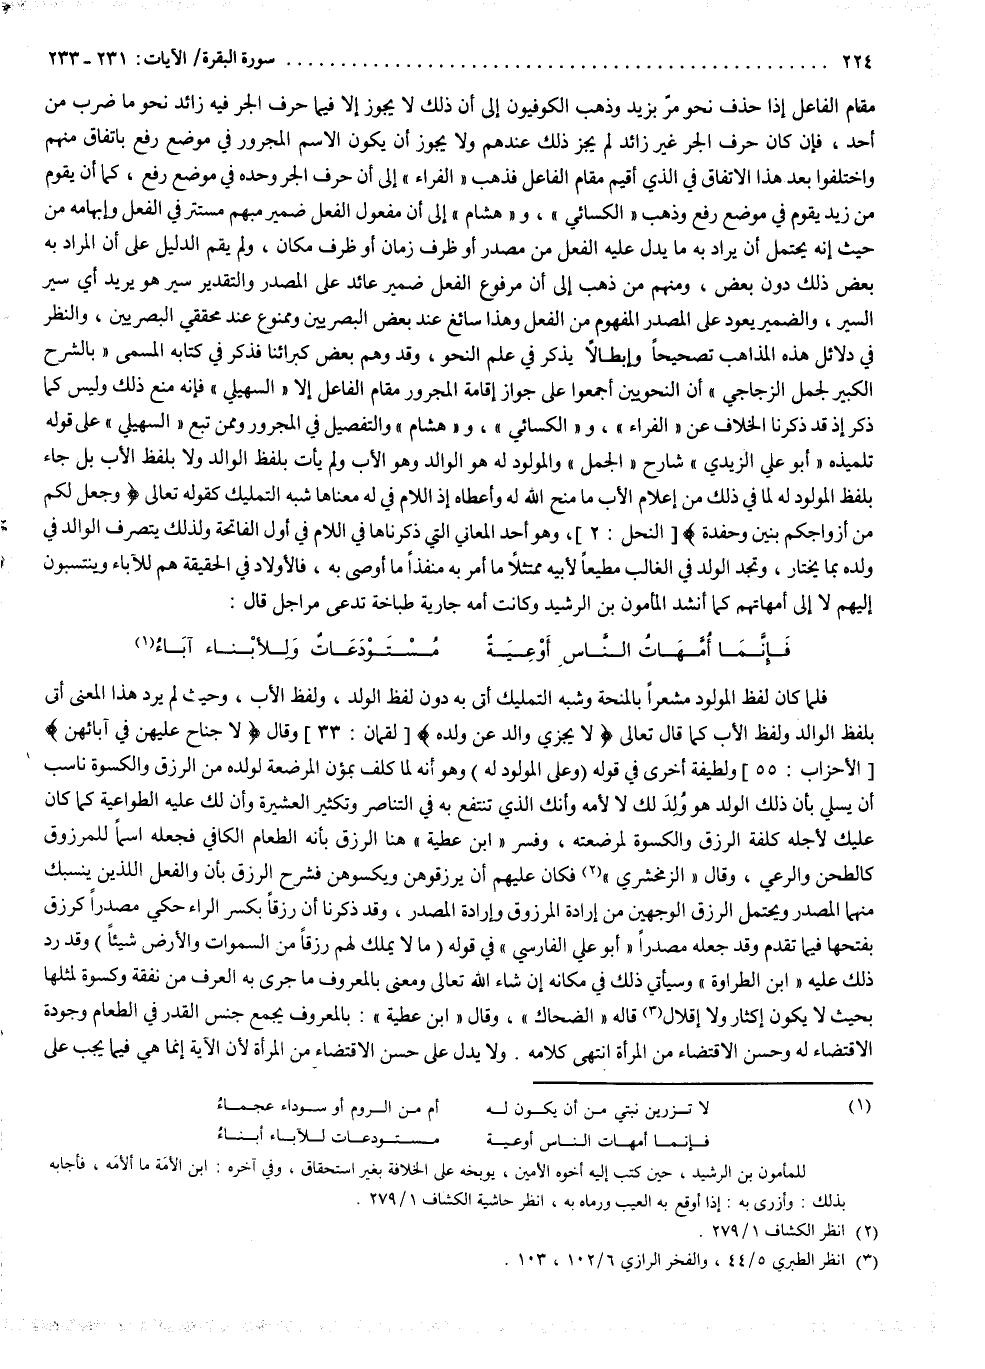 ٢٢٤ ........................................................ سورة البقرة/ الآيات: ٢٣١ ـ ٢٣٣
مقام الفاعل إذا حذف نحو مرّ بزيد وذهب الكوفيون إلى أن ذلك لا يجوز إلا فيما حرف الجر فيه زائد نحو ما ضرب من
أحد ، فإن كان حرف الجر غير زائد لم يجز ذلك عندهم ولا يجوز أن يكون الاسم المجرور في موضع رفع باتفاق منهم
واختلفوا بعد هذا الاتفاق في الذي أقيم مقام الفاعل فذهب « الفراء » إلى أن حرف الجر وحده في موضع رفع ، كما أن يقوم
من زيد يقوم في موضع رفع وذهب « الكسائي » ، و « هشام » إلى أن مفعول الفعل ضمير مبهم مستتر في الفعل وإبهامه من
حيث إنه يحتمل أن يراد به ما يدل عليه الفعل من مصدر أو ظرف زمان أو ظرف مكان ، ولم يقم الدليل على أن المراد به
بعض ذلك دون بعض ، ومنهم من ذهب إلى أن مرفوع الفعل ضمير عائد على المصدر والتقدير سير هو يريد أي سير
السير ، والضمير يعود على المصدر المفهوم من الفعل وهذا سائغ عند بعض البصريين وممنوع عند محققي البصريين ، والنظر
في دلائل هذه المذاهب تصحيحاً وإبطالاً يذكر في علم النحو ، وقد وهم بعض كبرائنا فذكر في كتابه المسمى « بالشرح
الكبير لجمل الزجاجي » أن النحويين أجمعوا على جواز إقامة المجرور مقام الفاعل إلا « السهيلي » فإنه منع ذلك وليس كما
ذكر إذ قد ذكرنا الخلاف عن « الفراء » ، و « الكسائي » ، و « هشام » والتفصيل في المجرور وممن تبع « السهيلي » على قوله
تلميذه « أبو علي الزيدي » شارح « الجمل » والمولود له هو الوالد وهو الأب ولم يأت بلفظ الوالد ولا بلفظ الأب بل جاء
بلفظ المولود له لما في ذلك من إعلام الأب ما منح الله له وأعطاه إذ اللام في له معناها شبه التمليك كقوله تعالى ﴿ وجعل لكم
من أزواجكم بنين وحفدة ﴾ [ النحل : ٢ ]، وهو أحد المعاني التي ذكرناها في اللام في أول الفاتحة ولذلك يتصرف الوالد في
ولده بما يختار ، وتجد الولد في الغالب مطيعاً لأبيه ممتثلًا ما أمر به منفذاً ما أوصى به ، فالأولاد في الحقيقة هم للآباء وينتسبون
إليهم لا إلى أمهاتهم كما أنشد المأمون بن الرشيد وكانت أمه جارية طباخة تدعى مراجل قال :
فَإِنَّمَا أُمَّهَاتُ النَّاسِ أَوْعِيَةٌ مُسْتَوْدَعَاتٌ وَلِلأَبْنَاء آبَاءُ(١)
فلما كان لفظ المولود مشعراً بالمنحة وشبه التمليك أتى به دون لفظ الولد ، ولفظ الأب ، وحيث لم يرد هذا المعنى أتى
بلفظ الوالد ولفظ الأب كما قال تعالى ﴿ لا يجزي والد عن ولده ﴾ [ لقمان : ٣٣ ] وقال ﴿ لا جناح عليهن في آبائهن ﴾
[ الأحزاب : ٥٥ ] ولطيفة أخرى في قوله (وعلى المولود له ) وهو أنه لما كلف بمؤن المرضعة لولده من الرزق والكسوة ناسب
أن يسلي بأن ذلك الولد هو وُلِدَ لك لا لأمه وأنك الذي تنتفع به في التناصر وتكثير العشيرة وأن لك عليه الطواعية كما كان
عليك لأجله كلفة الرزق والكسوة لمرضعته ، وفسر « ابن عطية » هنا الرزق بأنه الطعام الكافي فجعله اسماً للمرزوق
كالطحن والرعي ، وقال « الزمخشري »(٢) فكان عليهم أن يرزقوهن ويكسوهن فشرح الرزق بأن والفعل اللذين ينسبك
منهما المصدر ويحتمل الرزق الوجهين من إرادة المرزوق وإرادة المصدر ، وقد ذكرنا أن رزقاً بكسر الراء حكي مصدراً كرزق
بفتحها فيما تقدم وقد جعله مصدراً « أبو علي الفارسي » في قوله ( ما لا يملك لهم رزقاً من السموات والأرض شيئاً ) وقد رد
ذلك عليه « ابن الطراوة » وسيأتي ذلك في مكانه إن شاء الله تعالى ومعنى بالمعروف ما جرى به العرف من نفقة وكسوة لمثلها
بحيث لا يكون إكثار ولا إقلال(٣) قاله « الضحاك » ، وقال « ابن عطية » : بالمعروف يجمع جنس القدر في الطعام وجودة
الاقتضاء له وحسن الاقتضاء من المرأة انتهى كلامه . ولا يدل على حسن الاقتضاء من المرأة لأن الآية إنما هي فيما يجب على
(١) لا تـزرين نبتي مـن أن يكـون لـه أم مـن الـروم أو سـوداء عجمـاءُ
فـإنمـا أمهـات النـاس أوعيـة مستـودعـات لـلآبـاء أبنـاءُ
للمأمون بن الرشيد ، حين كتب إليه أخوه الأمين ، يوبخه على الخلافة بغير استحقاق ، وفي آخره : ابن الأمَة ما ألأمَه ، فأجابه
بذلك : وأزرى به : إذا أوقع به العيب ورماه به ، انظر حاشية الكشاف ٢٧٩/١ .
(٢) انظر الكشاف ٢٧٩/١ .
(٣) انظر الطبري ٤٤/٥ ، والفخر الرازي ١٠٢/٦ ، ١٠٣ .